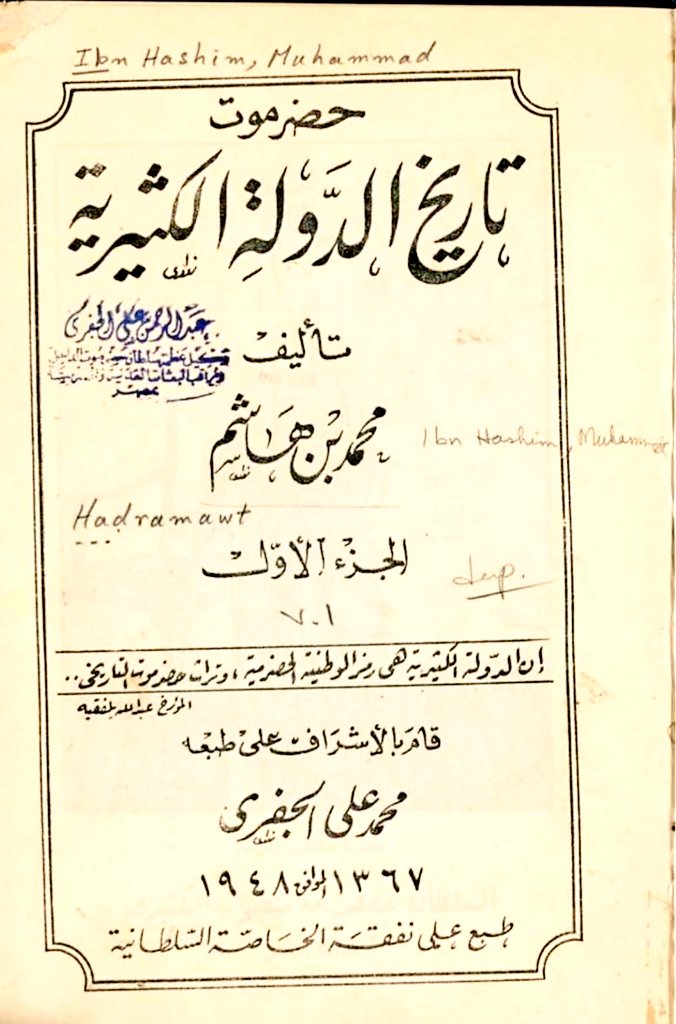 Ibn Hashim, Muhammad
حضرموت
تاريخ الدَّولةِ الكثيرية
تأليف
عبد الرحمن علي الجفري
بمصر
محمد بن هاشم
Ibn Hashim, Muhammad
Hadramawt
الجزء الأوّل
dup.
v.1
إن الدّولة الكثيرية هى رمز الوطنية الحضرمية ، وتراث حضرموت التاريخى ..
المؤرخ عبدالله بلفقيه
قام بالأشراف على طبعه
محمد على الجفرى
١٣٦٧ الموافق ١٩٤٨
طبع على نفقة الخاصّة السّلطانية